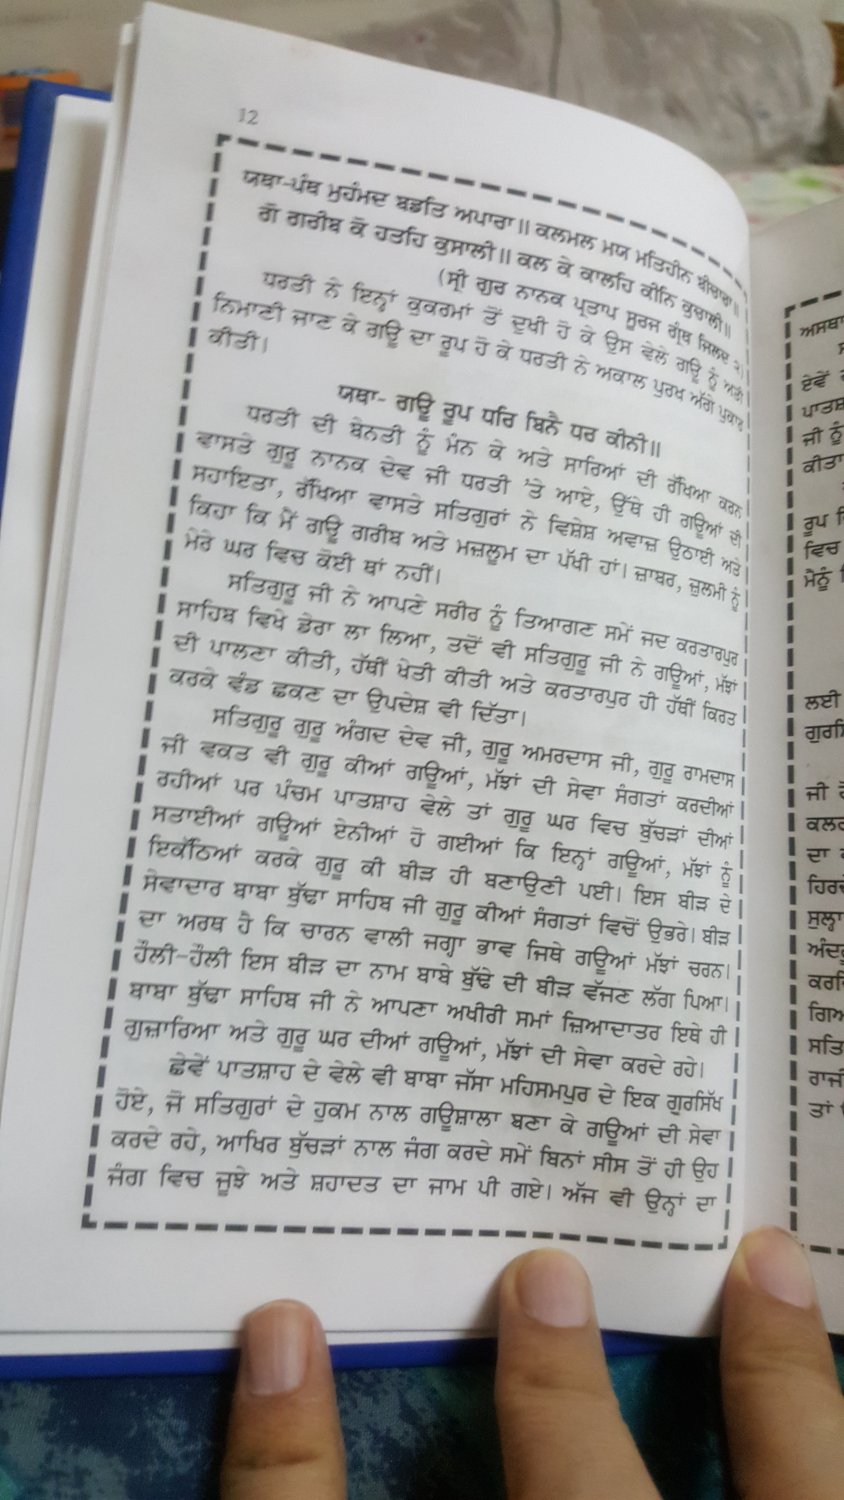 12
ਯਥਾ-ਪੰਥ ਮੁਹੰਮਦ ਬਡਤਿ ਅਪਾਰਾ॥ ਕਲਮਲ ਮਯ ਮਤਿਹੀਨ ਬੀਚਾਰਾ॥
ਗੋ ਗਰੀਬ ਕੋ ਹਤਹਿ ਕੁਸਾਲੀ॥ ਕਲ ਕੇ ਕਾਲਹਿ ਕੀਨਿ ਕੁਚਾਲੀ॥
(ਸ੍ਰੀ ਗੁਰ ਨਾਨਕ ਪ੍ਰਤਾਪ ਸੂਰਜ ਗ੍ਰੰਥ ਜਿਲਦ ੨)
ਧਰਤੀ ਨੇ ਇਨ੍ਹਾਂ ਕੁਕਰਮਾਂ ਤੋਂ ਦੁਖੀ ਹੋ ਕੇ ਉਸ ਵੇਲੇ ਗਊ ਨੂੰ ਅਤੀ
ਨਿਮਾਣੀ ਜਾਣ ਕੇ ਗਊ ਦਾ ਰੂਪ ਹੋ ਕੇ ਧਰਤੀ ਨੇ ਅਕਾਲ ਪੁਰਖ ਅੱਗੇ ਪੁਕਾਰ
ਕੀਤੀ।
ਯਥਾ- ਗਊ ਰੂਪ ਧਰਿ ਬਿਨੈ ਧਰ ਕੀਨੀ॥
ਧਰਤੀ ਦੀ ਬੇਨਤੀ ਨੂੰ ਮੰਨ ਕੇ ਅਤੇ ਸਾਰਿਆਂ ਦੀ ਰੱਖਿਆ ਕਰਨ
ਵਾਸਤੇ ਗੁਰੂ ਨਾਨਕ ਦੇਵ ਜੀ ਧਰਤੀ 'ਤੇ ਆਏ, ਉੱਥੇ ਹੀ ਗਊਆਂ ਦੀ
ਸਹਾਇਤਾ, ਰੱਖਿਆ ਵਾਸਤੇ ਸਤਿਗੁਰਾਂ ਨੇ ਵਿਸ਼ੇਸ਼ ਅਵਾਜ਼ ਉਠਾਈ ਅਤੇ
ਕਿਹਾ ਕਿ ਮੈਂ ਗਊ ਗਰੀਬ ਅਤੇ ਮਜ਼ਲੂਮ ਦਾ ਪੱਖੀ ਹਾਂ। ਜ਼ਾਬਰ, ਜ਼ੁਲਮੀ ਨੂੰ
ਮੇਰੇ ਘਰ ਵਿਚ ਕੋਈ ਥਾਂ ਨਹੀਂ।
ਸਤਿਗੁਰੂ ਜੀ ਨੇ ਆਪਣੇ ਸਰੀਰ ਨੂੰ ਤਿਆਗਣ ਸਮੇਂ ਜਦ ਕਰਤਾਰਪੁਰ
ਸਾਹਿਬ ਵਿਖੇ ਡੇਰਾ ਲਾ ਲਿਆ, ਤਦੋਂ ਵੀ ਸਤਿਗੁਰੂ ਜੀ ਨੇ ਗਊਆਂ, ਮੱਝਾਂ
ਦੀ ਪਾਲਣਾ ਕੀਤੀ, ਹੱਥੀਂ ਖੇਤੀ ਕੀਤੀ ਅਤੇ ਕਰਤਾਰਪੁਰ ਹੀ ਹੱਥੀਂ ਕਿਰਤ
ਕਰਕੇ ਵੰਡ ਛਕਣ ਦਾ ਉਪਦੇਸ਼ ਵੀ ਦਿੱਤਾ।
ਸਤਿਗੁਰੂ ਗੁਰੂ ਅੰਗਦ ਦੇਵ ਜੀ, ਗੁਰੂ ਅਮਰਦਾਸ ਜੀ, ਗੁਰੂ ਰਾਮਦਾਸ
ਜੀ ਵਕਤ ਵੀ ਗੁਰੂ ਕੀਆਂ ਗਊਆਂ, ਮੱਝਾਂ ਦੀ ਸੇਵਾ ਸੰਗਤਾਂ ਕਰਦੀਆਂ
ਰਹੀਆਂ ਪਰ ਪੰਚਮ ਪਾਤਸ਼ਾਹ ਵੇਲੇ ਤਾਂ ਗੁਰੂ ਘਰ ਵਿਚ ਬੁੱਚੜਾਂ ਦੀਆਂ
ਸਤਾਈਆਂ ਗਊਆਂ ਏਨੀਆਂ ਹੋ ਗਈਆਂ ਕਿ ਇਨ੍ਹਾਂ ਗਊਆਂ, ਮੱਝਾਂ ਨੂੰ
ਇਕੱਠਿਆਂ ਕਰਕੇ ਗੁਰੂ ਕੀ ਬੀੜ ਹੀ ਬਣਾਉਣੀ ਪਈ। ਇਸ ਬੀੜ ਦੇ
ਸੇਵਾਦਾਰ ਬਾਬਾ ਬੁੱਢਾ ਸਾਹਿਬ ਜੀ ਗੁਰੂ ਕੀਆਂ ਸੰਗਤਾਂ ਵਿਚੋਂ ਉਭਰੇ। ਬੀੜ
ਦਾ ਅਰਥ ਹੈ ਕਿ ਚਾਰਨ ਵਾਲੀ ਜਗ੍ਹਾ ਭਾਵ ਜਿਥੇ ਗਊਆਂ ਮੱਝਾਂ ਚਰਨ।
ਹੌਲੀ-ਹੌਲੀ ਇਸ ਬੀੜ ਦਾ ਨਾਮ ਬਾਬੇ ਬੁੱਢੇ ਦੀ ਬੀੜ ਵੱਜਣ ਲੱਗ ਪਿਆ।
ਬਾਬਾ ਬੁੱਢਾ ਸਾਹਿਬ ਜੀ ਨੇ ਆਪਣਾ ਅਖੀਰੀ ਸਮਾਂ ਜ਼ਿਆਦਾਤਰ ਇਥੇ ਹੀ
ਗੁਜ਼ਾਰਿਆ ਅਤੇ ਗੁਰੂ ਘਰ ਦੀਆਂ ਗਊਆਂ, ਮੱਝਾਂ ਦੀ ਸੇਵਾ ਕਰਦੇ ਰਹੇ।
ਛੇਵੇਂ ਪਾਤਸ਼ਾਹ ਦੇ ਵੇਲੇ ਵੀ ਬਾਬਾ ਜੱਸਾ ਮਹਿਸਮਪੁਰ ਦੇ ਇਕ ਗੁਰਸਿੱਖ
ਹੋਏ, ਜੋ ਸਤਿਗੁਰਾਂ ਦੇ ਹੁਕਮ ਨਾਲ ਗਊਸ਼ਾਲਾ ਬਣਾ ਕੇ ਗਊਆਂ ਦੀ ਸੇਵਾ
ਕਰਦੇ ਰਹੇ, ਆਖਿਰ ਬੁੱਚੜਾਂ ਨਾਲ ਜੰਗ ਕਰਦੇ ਸਮੇਂ ਬਿਨਾਂ ਸੀਸ ਤੋਂ ਹੀ ਉਹ
ਜੰਗ ਵਿਚ ਜੂਝੇ ਅਤੇ ਸ਼ਹਾਦਤ ਦਾ ਜਾਮ ਪੀ ਗਏ। ਅੱਜ ਵੀ ਉਨ੍ਹਾਂ ਦਾ
ਏਵੇਂ
ਜੀ ਨੂੰ
ਰੂਪ
ਵਿਚ
ਮੈਨੂੰ
ਲਈ
ਜੀ
ਦਾ